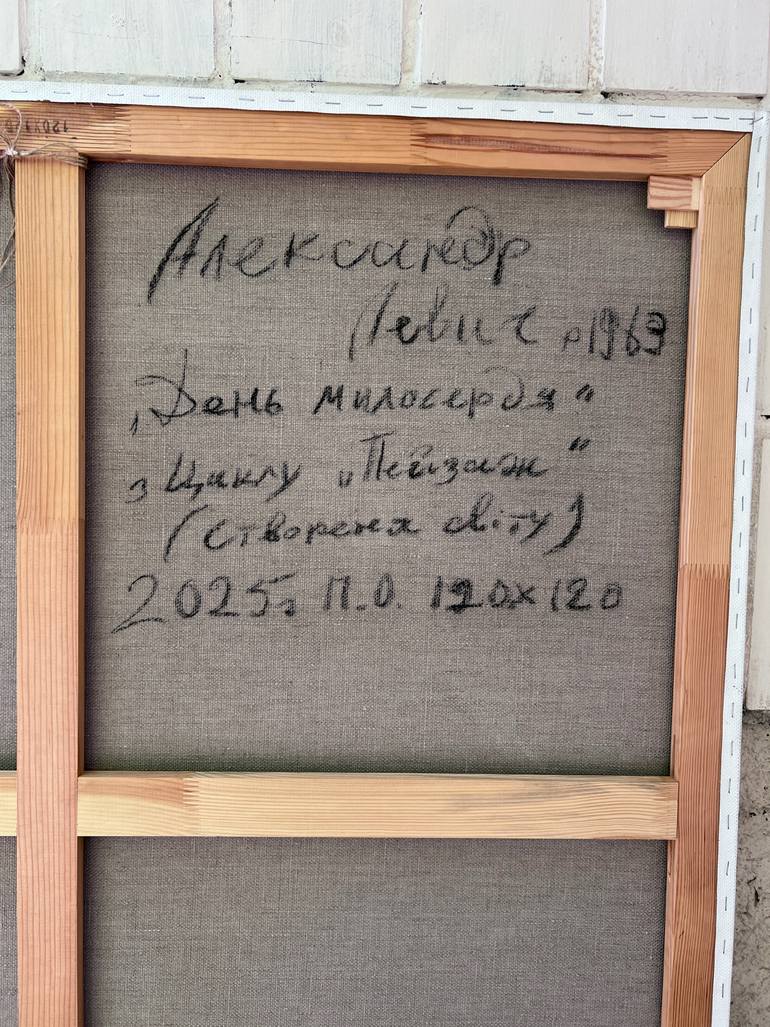 Александр
Левич р1963
„День милосердя“
з Циклу „Пейзаж“
(створеня світу)
2025г П.О. 120х120